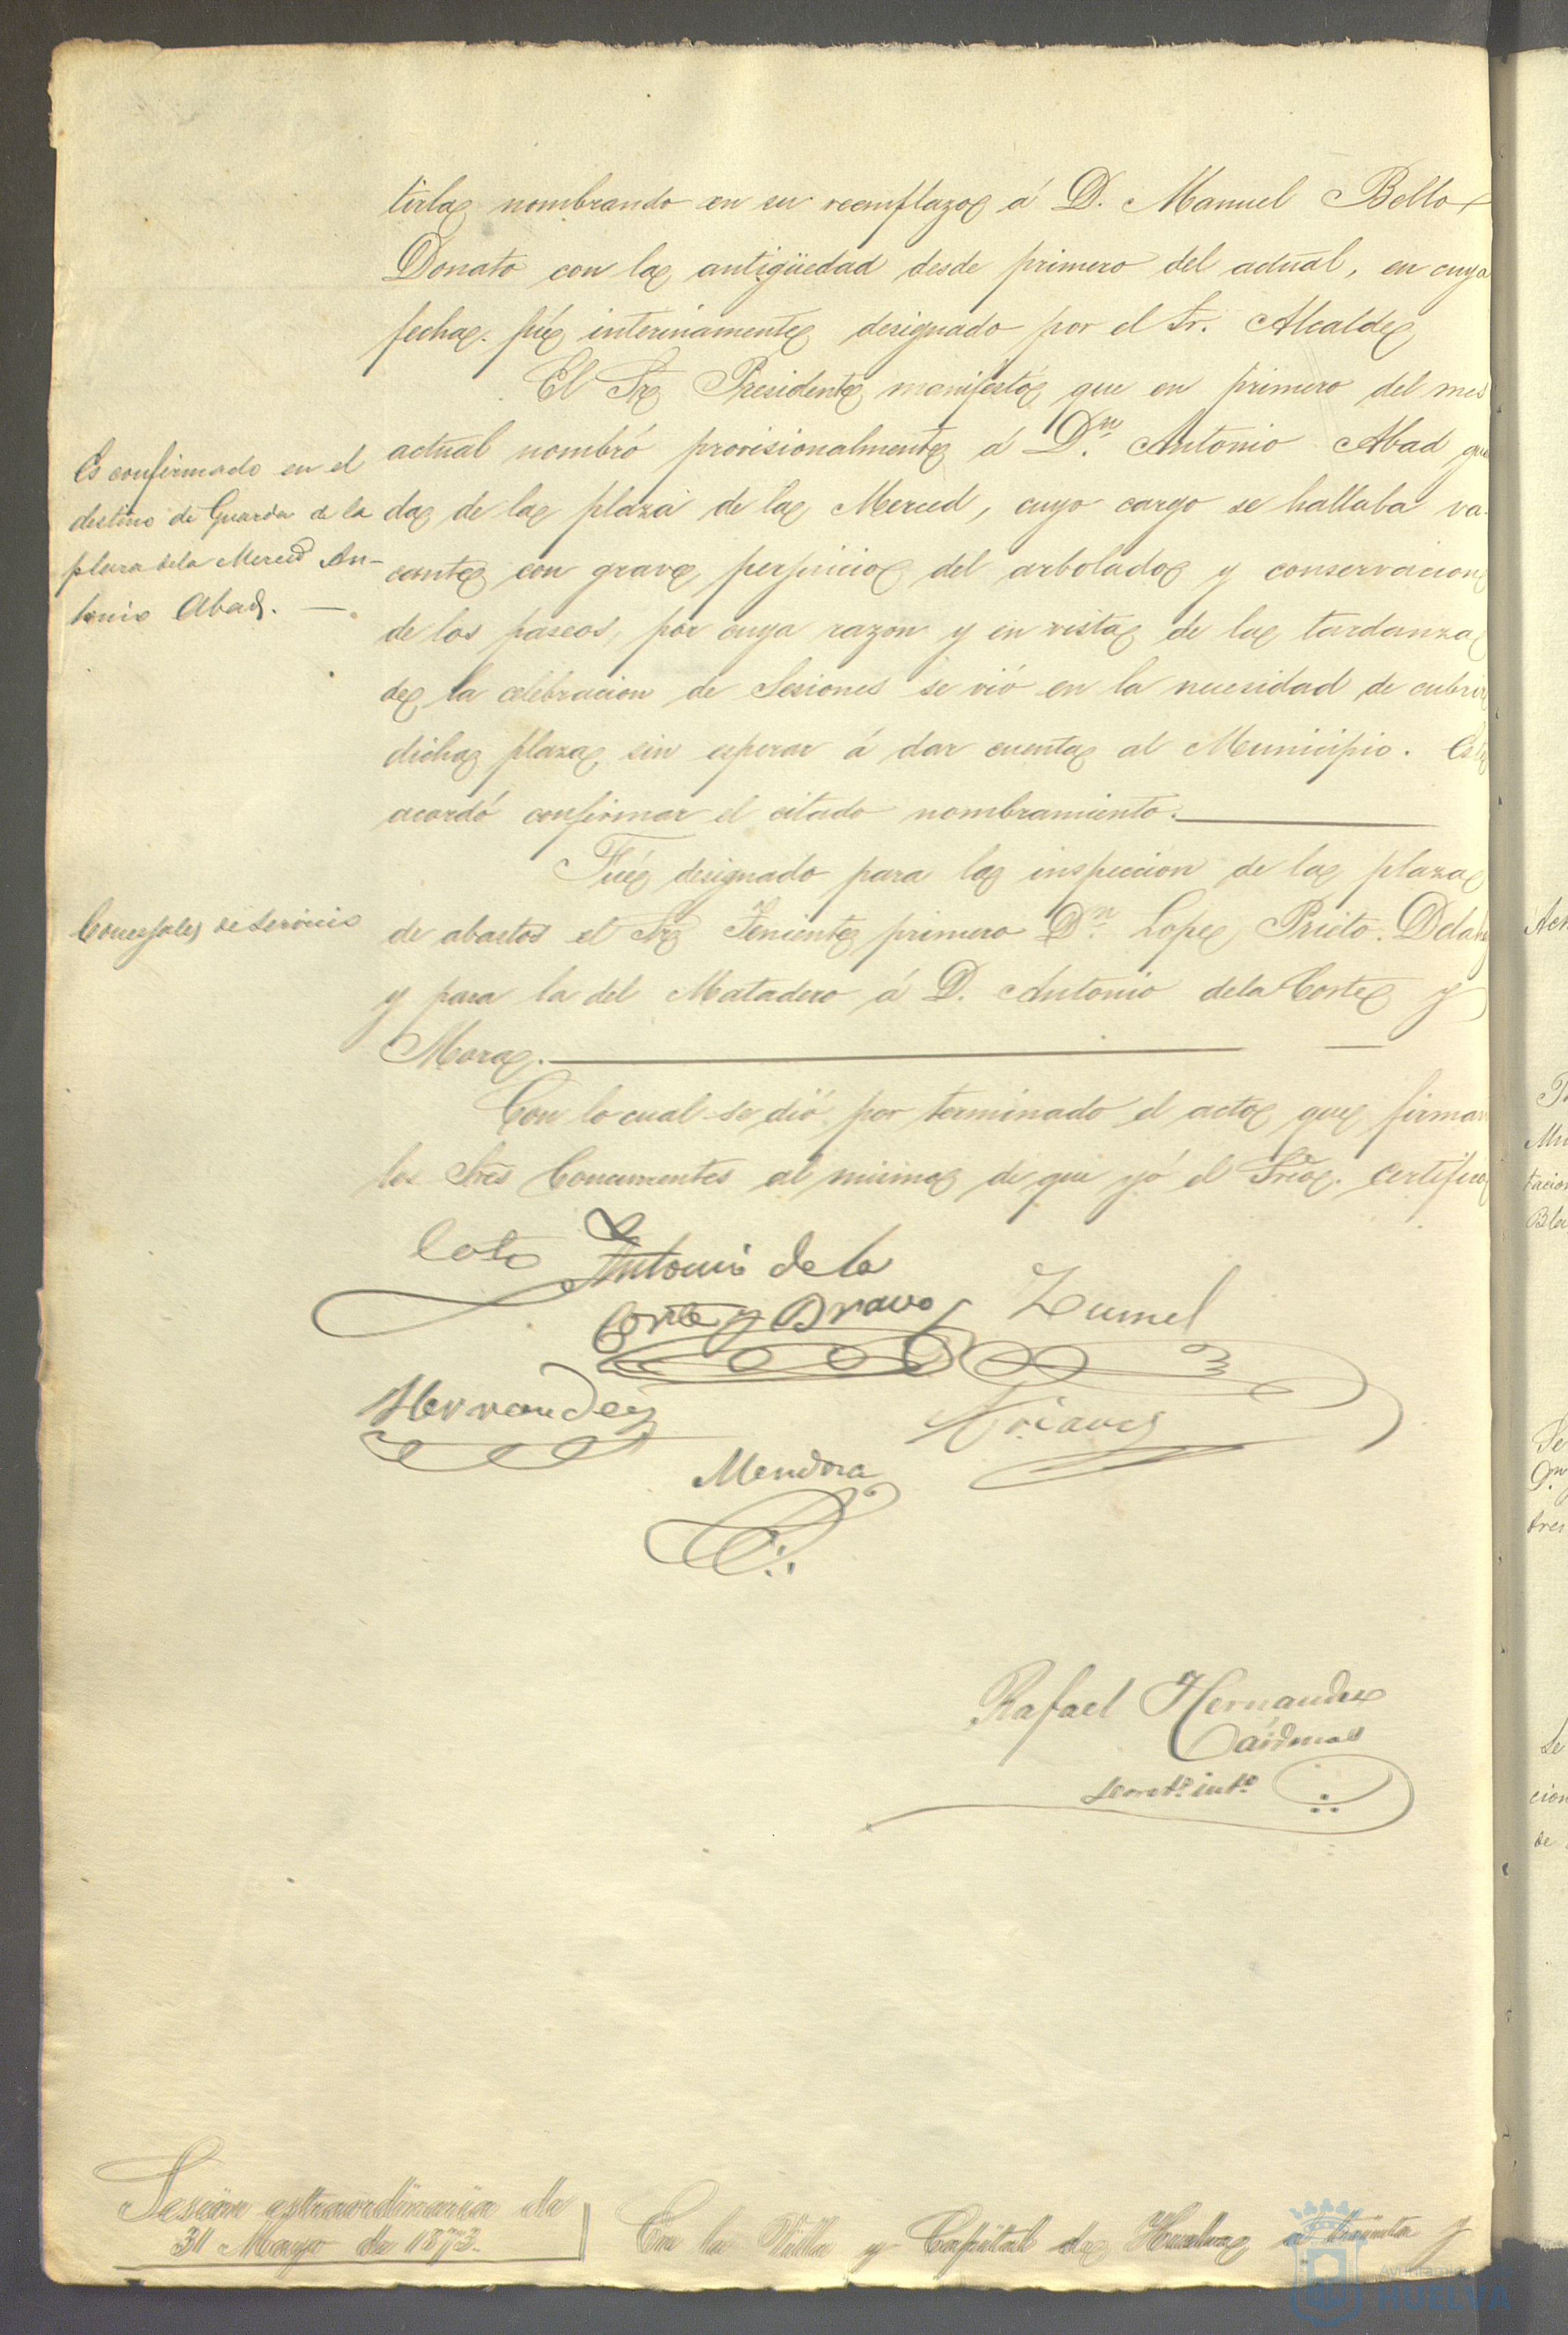 tirla nombrando en su reemplazo á D. Manuel Bello
Donato con la antigüedad desde primero del actual, en cuya
fecha fué interinamente designado por el Sr. Alcalde
El Sr Presidente manifestó que en primero del mes
Es confirmado en el
destino de Guarda de la
plaza dela Merced An-
tonio Abad. —
actual nombró provisionalmente á Dn. Antonio Abad gua
da de la plaza de la Merced, cuyo cargo se hallaba va-
cante con grave perjuicio del arbolado y conservacion
de los paseos, por cuya razon y en vista de la tardanza
de la celebracion de Sesiones se vió en la necesidad de cubrir
dicha plaza sin esperar á dar cuenta al Municipio. Este
acordó confirmar el citado nombramiento.
Fué designado para la inspeccion de la plaza
Concejales de servicio
de abastos el Sr Teniente primero Dn. Lope Prieto
y para la del Matadero á D. Antonio dela Corte y
Mora.
Con lo cual se dió por terminado el acto que firman
los Sres Concurrentes al mismo de que yó el Srio. certifico
Coto
Antonio de la
Corte y Bravo
Zumel
Hernandez
Mendoza
Rafael Hernandez
Cárdenas
Secreto. into.
Sesion estraordinaria de
31 Mayo de 1873.
En la Villa y Capital de Huelva á treinta y
Ayuntamiento
HUELVA